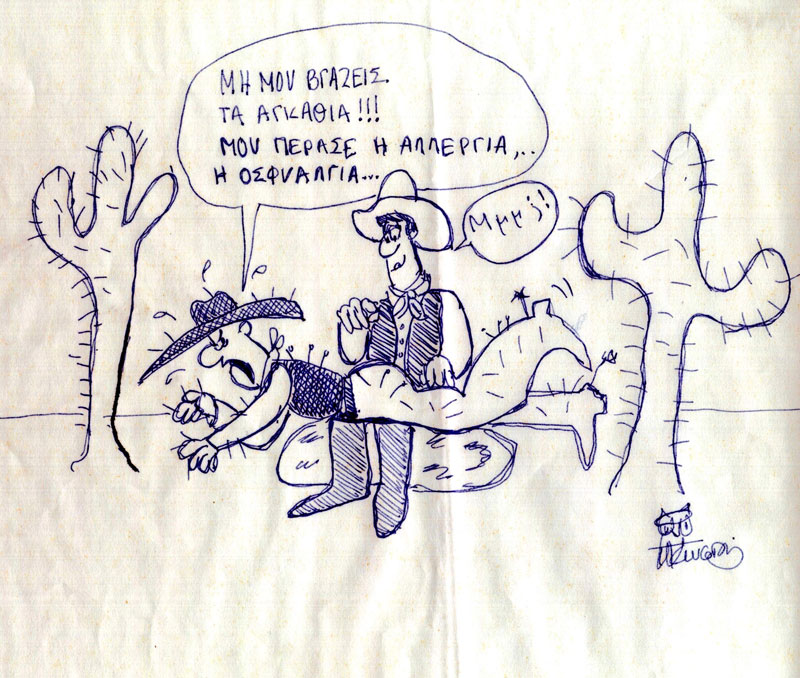 ΜΗ ΜΟΥ ΒΓΑΖΕΙΣ
ΤΑ ΑΓΚΑΘΙΑ!!!
ΜΟΥ ΠΕΡΑΣΕ Η ΑΛΛΕΡΓΙΑ,..
Η ΟΣΦΥΑΛΓΙΑ...
Μμμ;!